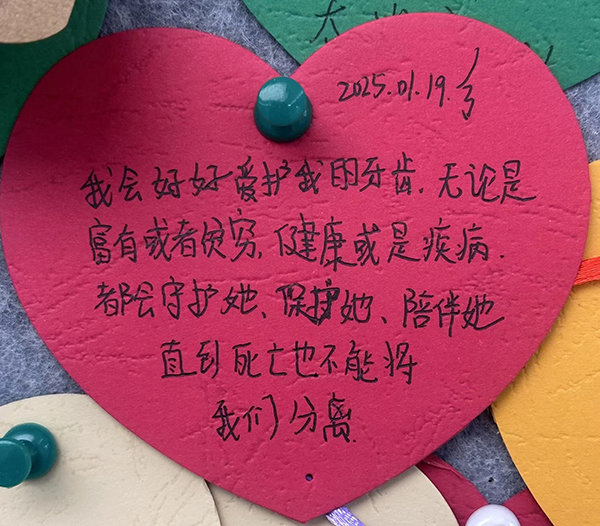 2025.01.19.
我会好好爱护我的牙齿.无论是
富有或者贫穷,健康或是疾病.
都会守护她、保护她、陪伴她
直到死亡也不能将
我们分离